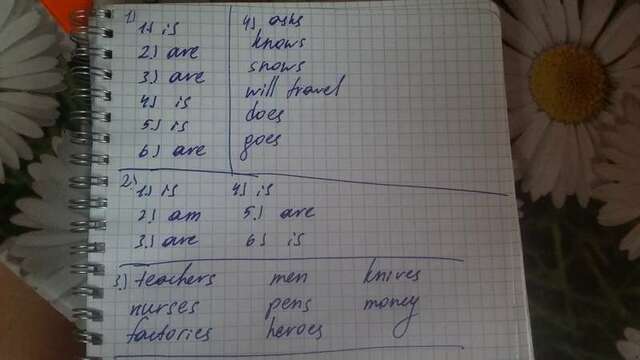 1.)
1.) is
2.) are
3.) are
4.) is
5.) is
6.) are
4.) asks
knows
snows
will travel
does
goes
2.)
1.) is 4.) is
2.) am 5.) are
3.) are 6.) is
3.) teachers men knives
nurses pens money
factories heroes